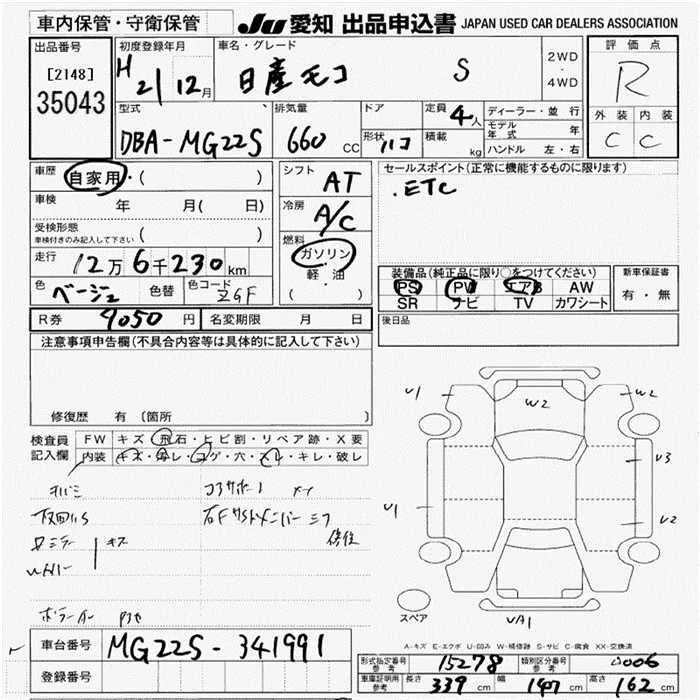 車内保管・守衛保管
JU 愛知 出品申込書 JAPAN USED CAR DEALERS ASSOCIATION
出品番号
[2148]
35043
初度登録年月
H21 12月
車名・グレード
日産モコ S
2WD
・
4WD
評価点
R
外装 内装
C C
型式
DBA-MG22S
排気量
660 CC
ドア
形状 ハコ
定員 4人
積載 kg
ディーラー・並行
モデル年式 年
ハンドル 左・右
車歴 自家用・( )
車検 年 月( 日)
受検形態
車検付きのみ記入して下さい ( )
走行 12万6千230km
色 ベージュ 色替 色コード ZGF
シフト AT
冷房 A/C
燃料 ガソリン
軽・油
( )
セールスポイント(正常に機能するものに限ります)
.ETC
装備品(純正品に限り○をつけてください)
PS PW エアB AW
SR ナビ TV カワシート
新車保証書
有・無
R券 9050円 名変期限 月 日
後日品
注意事項申告欄(不具合内容等は具体的に記入して下さい)
修復歴 有(箇所 )
検査員記入欄
FW キズ・飛石・ヒビ割・リペア跡・X要
内装 キズ・汚レ・コゲ・穴・スレ・キレ・破レ
キズ
W2
U1 W2
U3
U1 U2
UA1
スペア
A-キズ E-エクボ U-凹み W-補修跡 S-サビ C-腐食 XX-交換済
車台番号 MG22S-341991
登録番号
形式指定番号 参考 15278 類別区分番号 参考 0006
車庫証明用 参考 長さ 339cm 幅 147cm 高さ 162cm